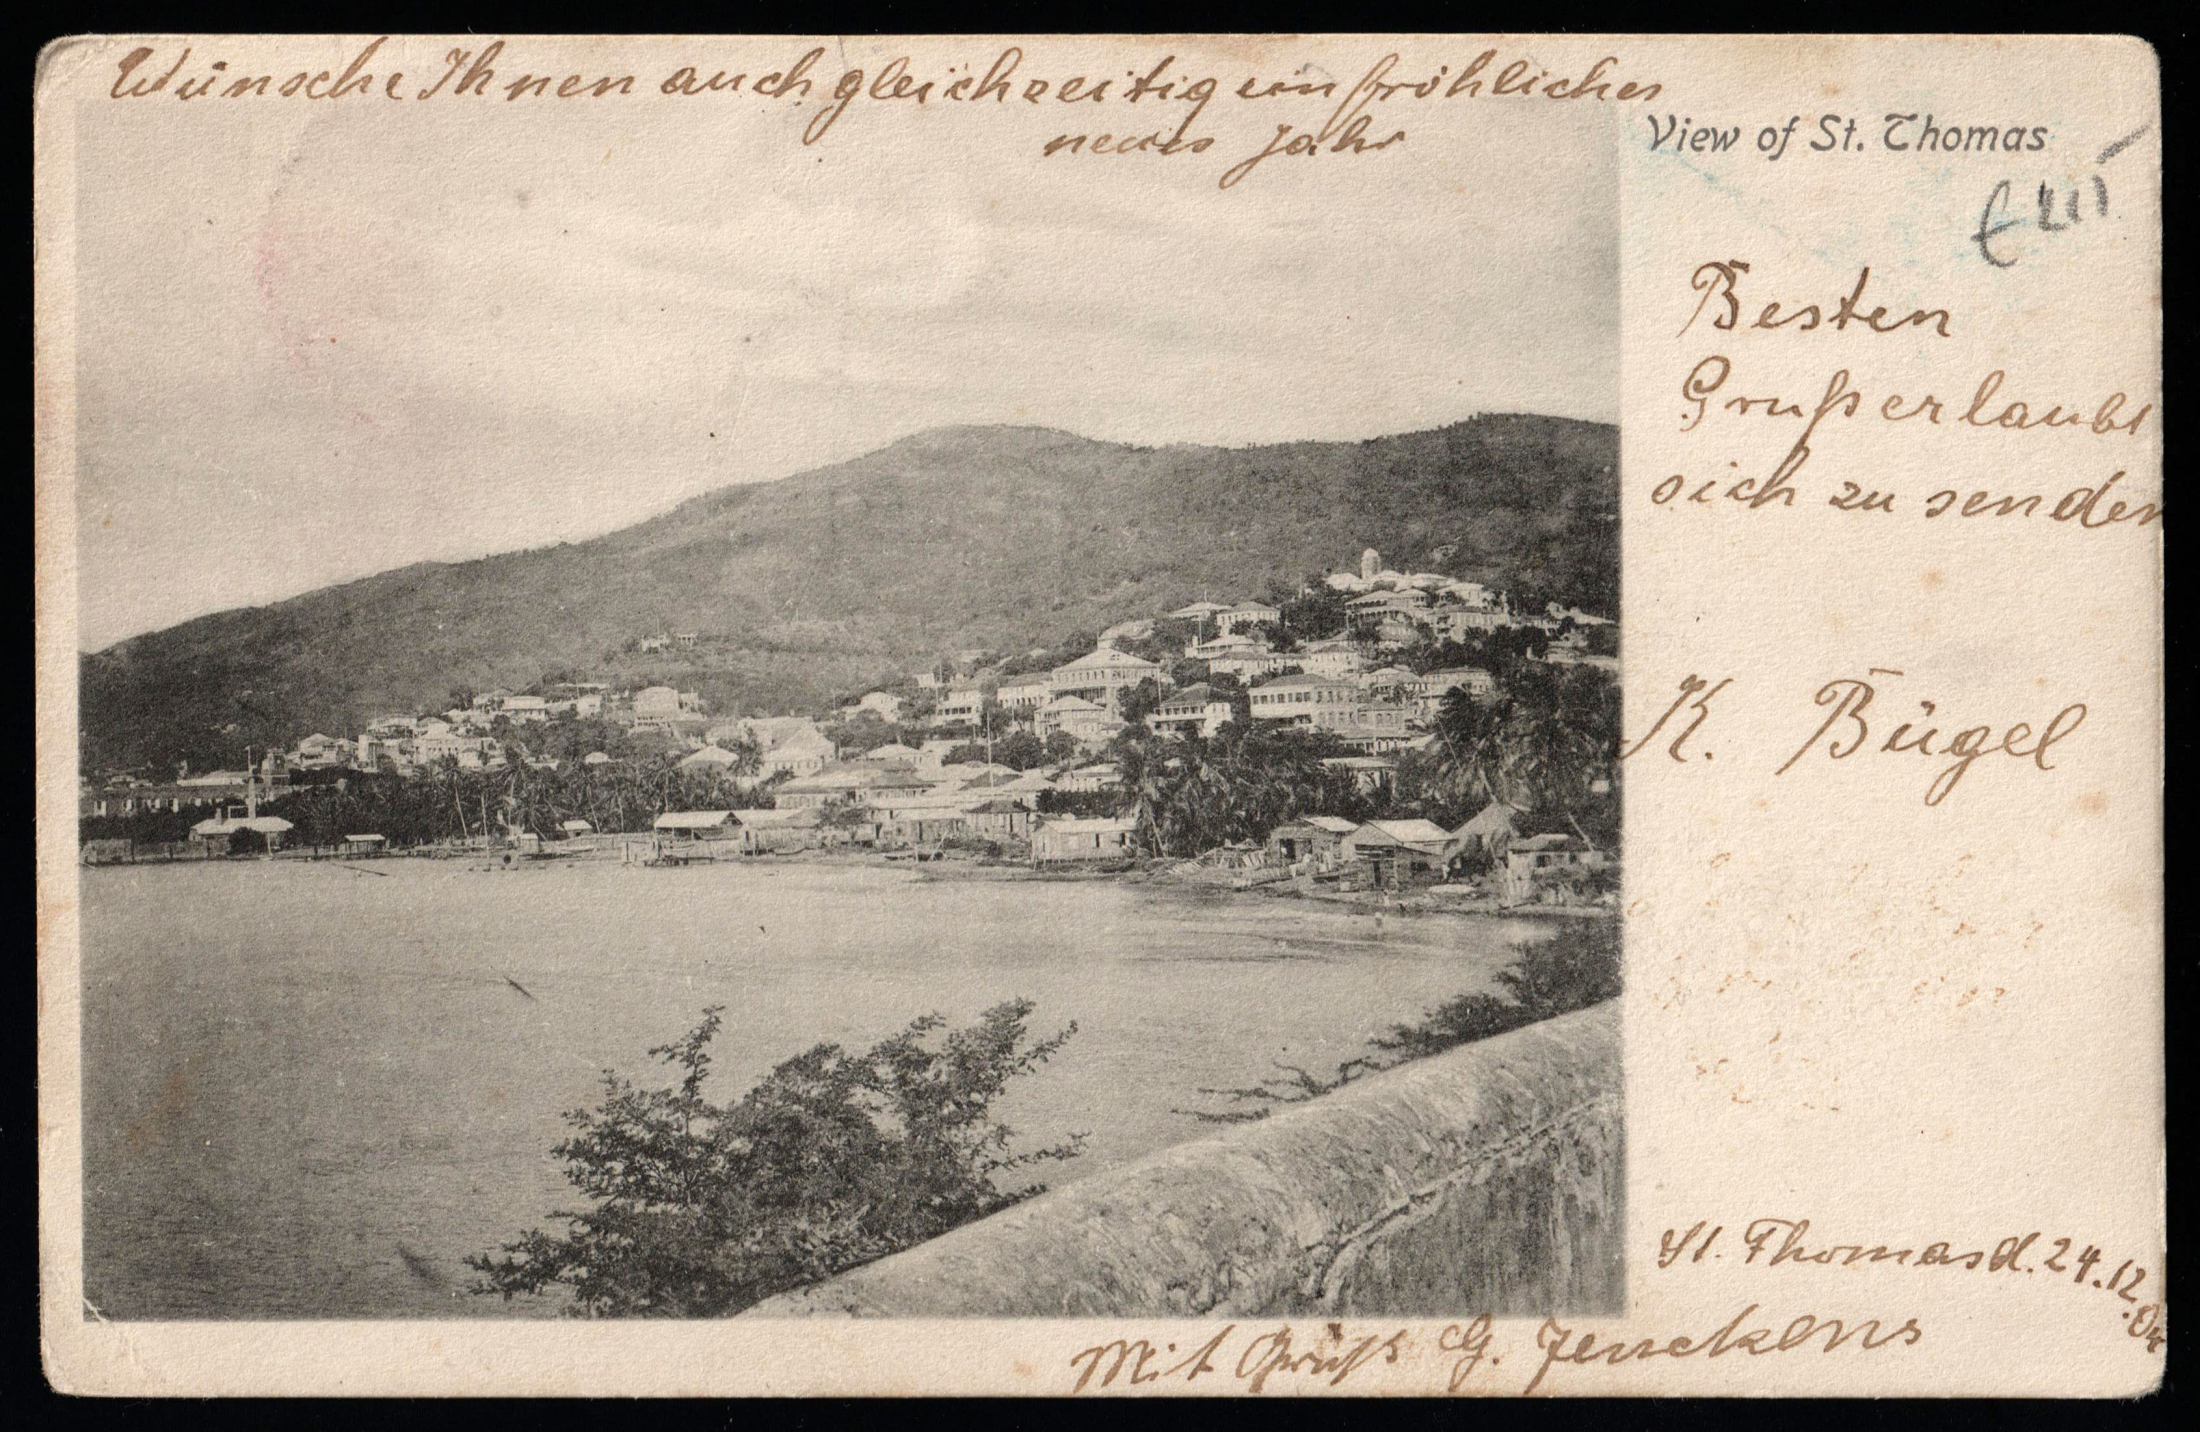 Wünsche Ihnen auch gleichzeitig ein fröhliches
neues Jahr
View of St. Thomas
Besten
Gruß erlaubt
sich zu senden
K. Bügel
St. Thomas d. 24.12.04
Mit Gruß G. Jenckens